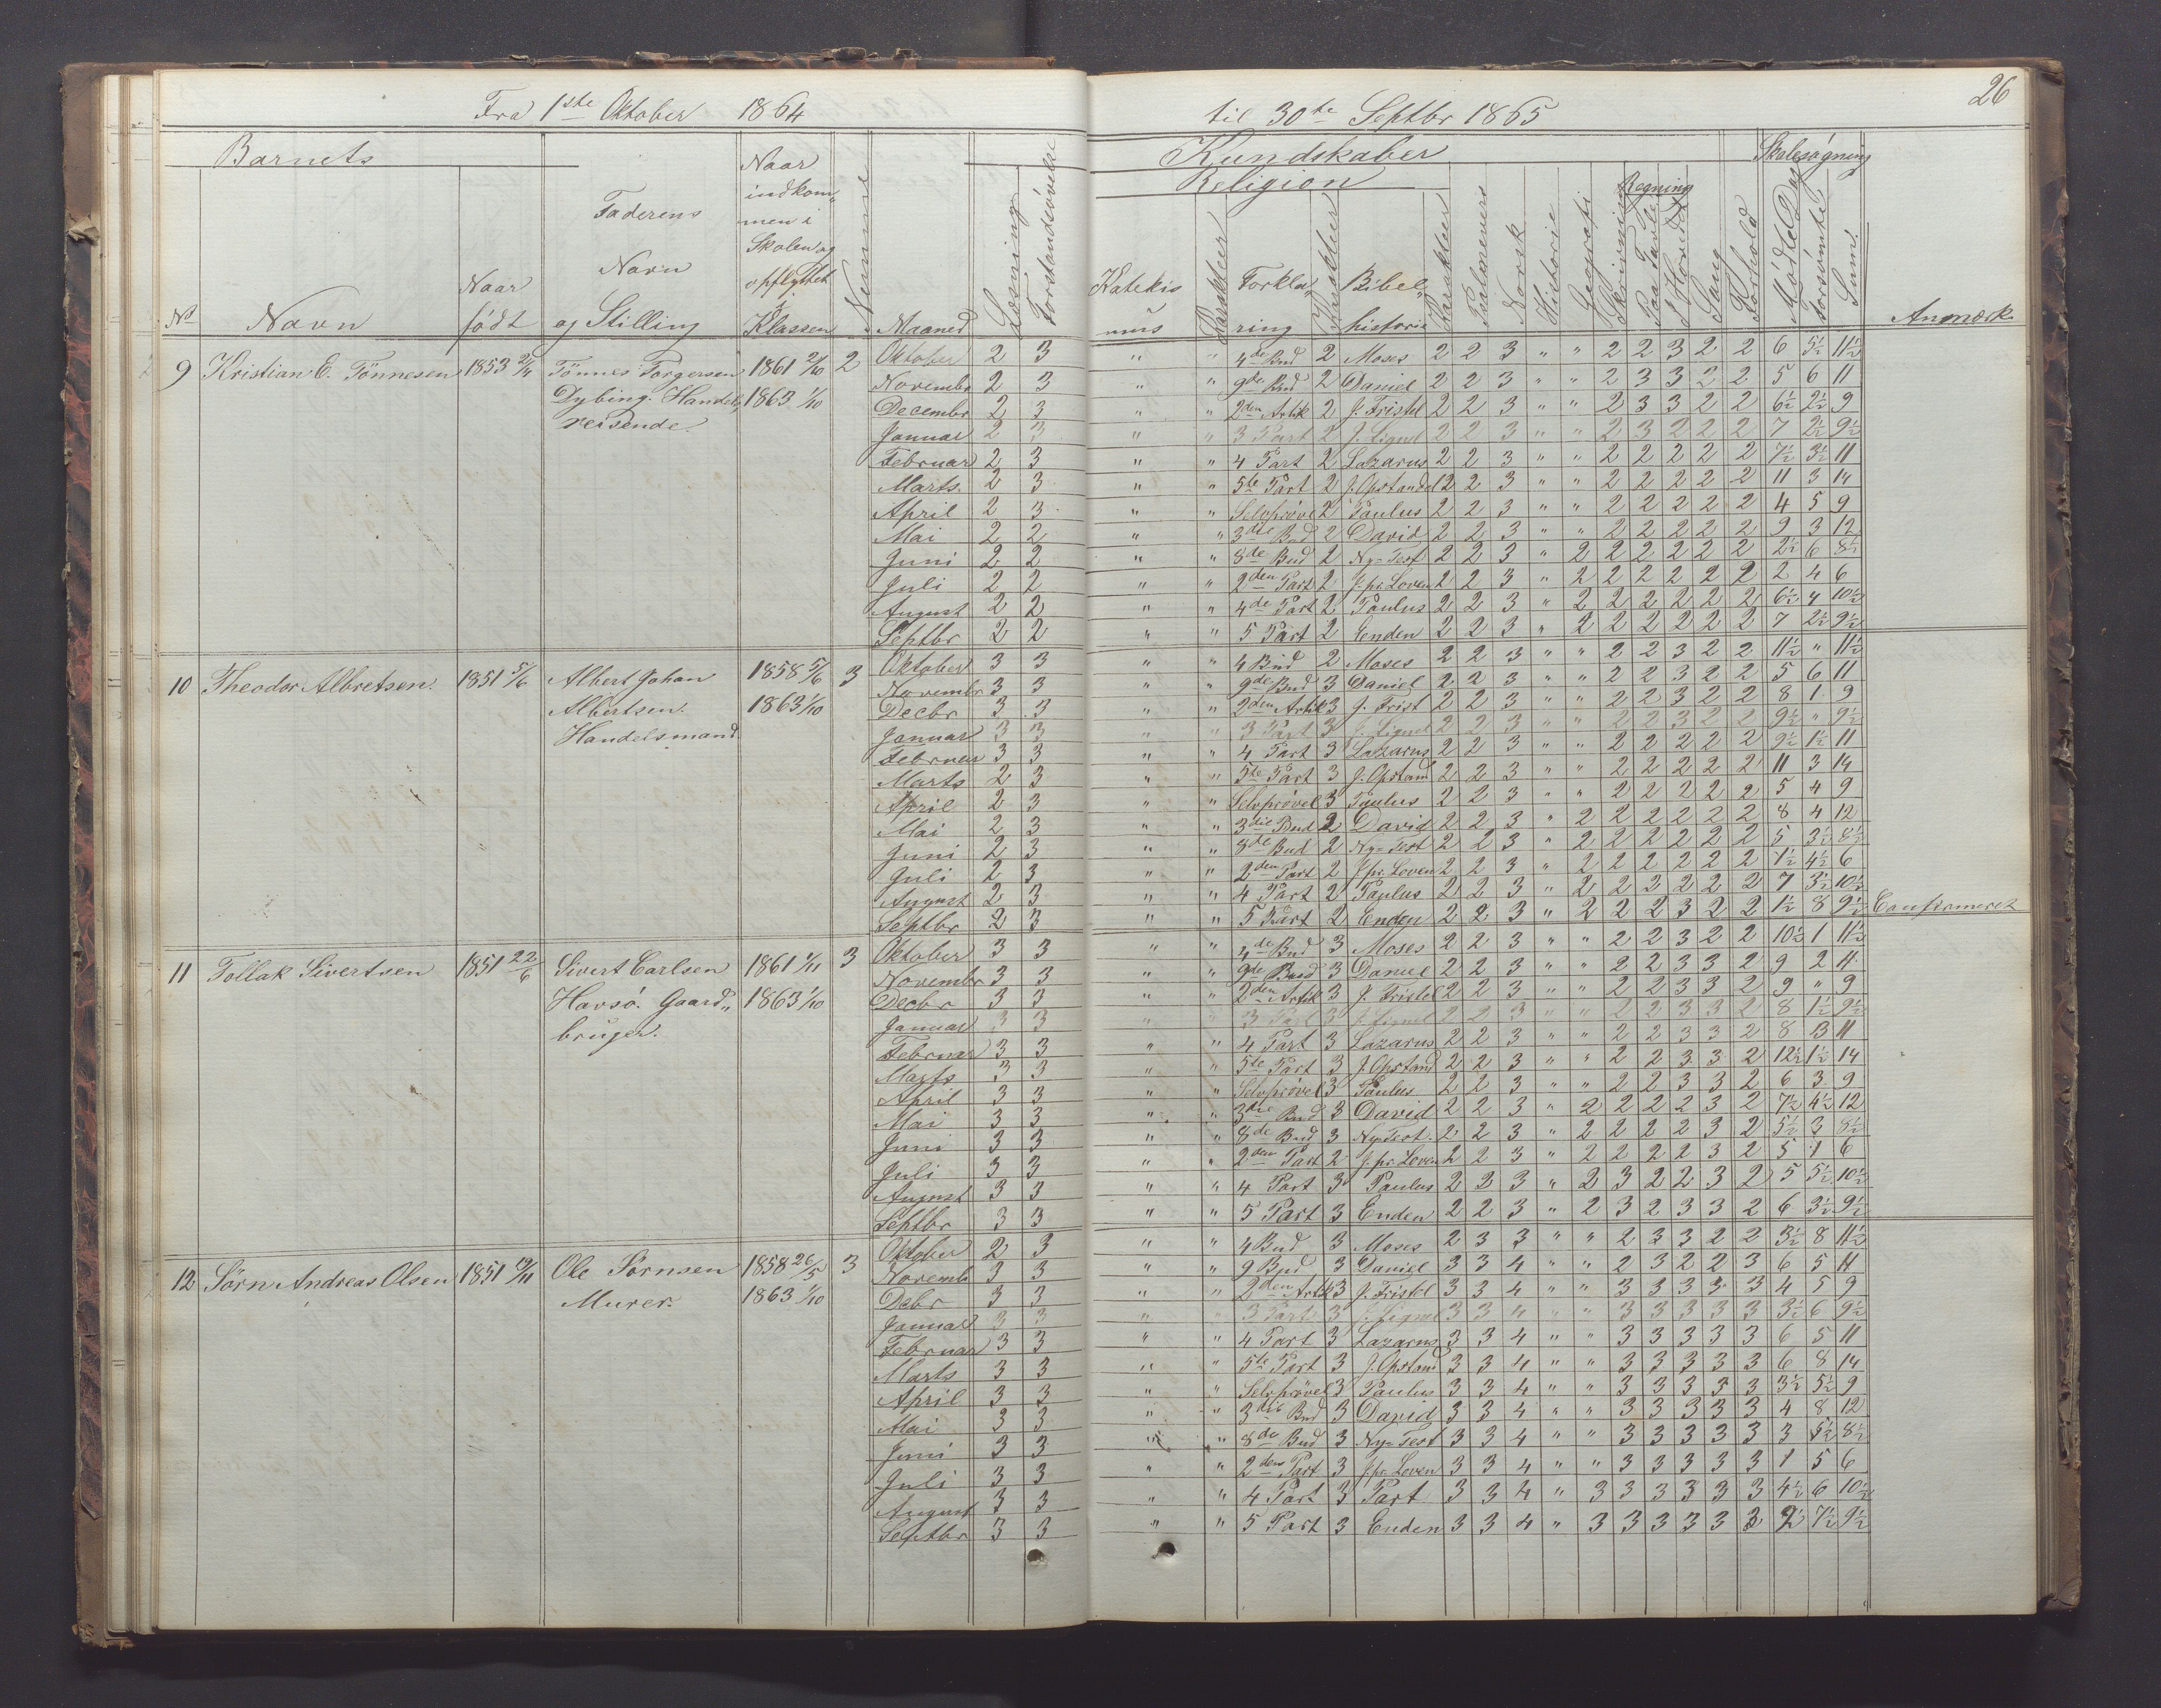 Fra 1ste Oktober 1864 til 30te Septbr 1865
26
Barnets
Kundskaber
Skolesøgning
Religion
Regning
Nr
Navn
Naar født
Faderens Navn og Stilling
Naar indkommen i Skolen og opflyttet i Klassen
Nummer
Maaned
Læsning
Forstandsøvelse
Katekismus
Karakteer
Forklaring
Karakteer
Bibelhistorie
Karakteer
Psalmevers
Norsk
Historie
Geografi
Skrivning
Paa Tavle
I Hovedet
Sang
Forhold
Mødte Dage
Forsømte
Sum.
Anmærk.
9 Kristian E. Tönnesen 1853 Tönnes Torgersen 1861 2/10 2
Dybing. Handels„ 1863 1/10
reisende.
Oktober 2 3 " " 4de Bud 2 Moses 2 2 3 " " 2 2 3 2 2 6 5½ 11½
Novembr 2 3 " " 9de Bud 2 Daniel 2 2 3 " " 2 3 3 2 2 5 6 11
Decembr 2 3 " " 2den Artik 2 J. Fristel 2 2 3 " " 2 3 3 2 2 6½ 2½ 9
Januar 2 3 " " 3 Part 2 J. Lignel 2 2 3 " " 2 3 2 2 2 7 2½ 9½
Februar 2 3 " " 4 Part 2 Lazarus 2 2 3 " " 2 2 2 2 2 7½ 3½ 11
Marts 2 3 " " 5te Part 2 J. Opstandel 2 2 3 " " 2 2 2 2 2 11 3 14
April 2 3 " " Selvprövel 2 Paulus 2 2 3 " " 2 2 2 2 2 4 5 9
Mai 2 2 " " 3die Bud 2 David 2 2 3 " " 2 2 2 2 2 9 3 12
Juni 2 2 " " 8de Bud 2 Ny=Test 2 2 3 " 2 2 2 2 2 2 2½ 6 8½
Juli 2 2 " " 2den Part 2 J. pr. Loven 2 2 3 " 2 2 2 2 2 2 2 4 6
August 2 2 " " 4de Part 2 Paulus 2 2 3 " 2 2 2 2 2 2 6½ 4 10½
Septbr 2 2 " " 5 Part 2 Enden 2 2 3 " 2 2 2 2 2 2 7 2½ 9½
10 Theodor Albretsen. 1851 5/6 Albert Johan 1858 5/6 3
Albertsen. 1863 1/10
Handelsmand
Oktober 3 3 " " 4 Bud 2 Moses 2 2 3 " " 2 2 3 2 2 11½ " 11½
Novembr 3 3 " " 9de Bud 3 Daniel 2 2 3 " " 2 2 3 2 2 5 6 11
Decbr 3 3 " " 2den Artik 3 J. Frist 2 2 3 " " 2 2 3 2 2 8 1 9
Januar 3 3 " " 3 Part 3 J. Lignel 2 2 3 " " 2 2 3 2 2 9½ " 9½
Februar 3 3 " " 4 Part 3 Lazarus 2 2 3 " " 2 2 2 2 2 9½ 1½ 11
Marts 2 3 " " 5te Part 3 J. Opstand 2 2 3 " " 2 2 2 2 2 11 3 14
April 2 3 " " Selvprövel 3 Paulus 2 2 3 " " 2 2 2 2 2 5 4 9
Mai 2 3 " " 3die Bud 2 David 2 2 3 " 2 2 2 2 2 2 8 4 12
Juni 2 3 " " 8de Bud 2 Ny=Test 2 2 3 " 2 2 2 2 2 2 5 3½ 8½
Juli 2 3 " " 2den Part 2 J. pr. Loven 2 2 3 " 2 2 2 2 2 2 1½ 4½ 6
August 2 3 " " 4 Part 2 Paulus 2 2 3 " 2 2 2 2 2 2 7 3½ 10½
Septbr 2 3 " " 5 Part 2 Enden 2 2 3 " 2 2 2 3 2 2 1½ 8 9½ Confirmeret
11 Tollak Sivertsen 1851 22/6 Sivert Carlsen 1861 1/11 3
Havsö. Gaard„ 1863 1/10
bruger.
Oktober 3 3 " " 4de Bud 3 Moses 2 2 3 " " 2 2 3 2 2 10½ 1 11½
Novembr 3 3 " " 9de Bud 3 Daniel 2 2 3 " " 2 2 3 3 2 9 2 11
Decbr 3 3 " " 2den Artik 3 J. Fristel 2 2 3 " " 2 2 3 3 2 9 " 9
Januar 3 3 " " 3 Part 3 J. Lignel 2 2 3 " " 2 2 3 3 2 8 1½ 9½
Februar 3 3 " " 4 Part 3 Lazarus 2 2 3 " " 2 2 3 3 2 8 3 11
Marts 3 3 " " 5te Part 3 J. Opstand 2 2 3 " " 2 2 3 3 2 12½ 1½ 14
April 3 3 " " Selvprövel 3 Paulus 2 2 3 " " 2 2 3 3 2 6 3 9
Mai 3 3 " " 3die Bud 3 David 2 2 3 " 2 2 2 2 3 2 7½ 4½ 12
Juni 3 3 " " 8de Bud 3 Ny=Test. 2 2 3 " 2 2 2 2 3 2 5½ 3 8½
Juli 3 3 " " 2den Part 2 J. pr. Loven 2 2 3 " 2 2 2 2 3 2 5 1 6
August 3 3 " " 4 Part 3 Paulus 2 3 3 " 2 3 2 2 3 2 5 5½ 10½
Septbr 3 3 " " 5 Part 3 Enden 2 2 3 " 2 3 2 3 3 2 6 3½ 9½
12 Sörn Andreas Olsen 1851 Ole Sörnsen 1858 26/5 3
Murer. 1863 1/10
Oktober 2 3 " " 4 Bud 3 Moses 2 3 3 " " 2 3 3 2 2 3½ 8 11½
Novembr 3 3 " " 9 Bud 3 Daniel 3 3 4 " " 2 3 2 2 3 6 5 11
Debr 3 3 " " 2den Artk 3 J. Fristel 3 3 4 " " 3 3 3 3 3 4 5 9
Januar 3 3 " " 3 Part 3 J. Lignel 3 3 4 " " 3 3 3 3 3 3½ 6 9½
Februar 3 3 " " 4 Part 3 Lazarus 3 3 4 " " 3 3 3 3 3 6 5 11
Marts 3 3 " " 5te Part 3 J. Opstand 3 3 4 " " 3 3 3 3 3 6 8 14
April 3 3 " " Selvprövel 3 Paulus 3 3 4 " " 3 3 3 3 3 3½ 5½ 9
Mai 3 3 " " 3die Bud 3 David 3 3 4 " " 3 3 3 3 3 4 8 12
Juni 3 3 " " 8de Bud 3 Ny=Test 3 3 4 " " 3 3 3 3 3 3 5½ 8½
Juli 3 3 " " 2den Part 3 J. pr. Loven 3 3 4 " " 3 3 3 3 3 1 5 6
August 3 3 " " 4 Part 3 Part 3 3 4 " 3 3 3 3 3 3 4½ 6 10½
Septbr 3 3 " " 5 Part 3 Enden 3 3 4 " 3 3 3 3 3 3 2 7½ 9½